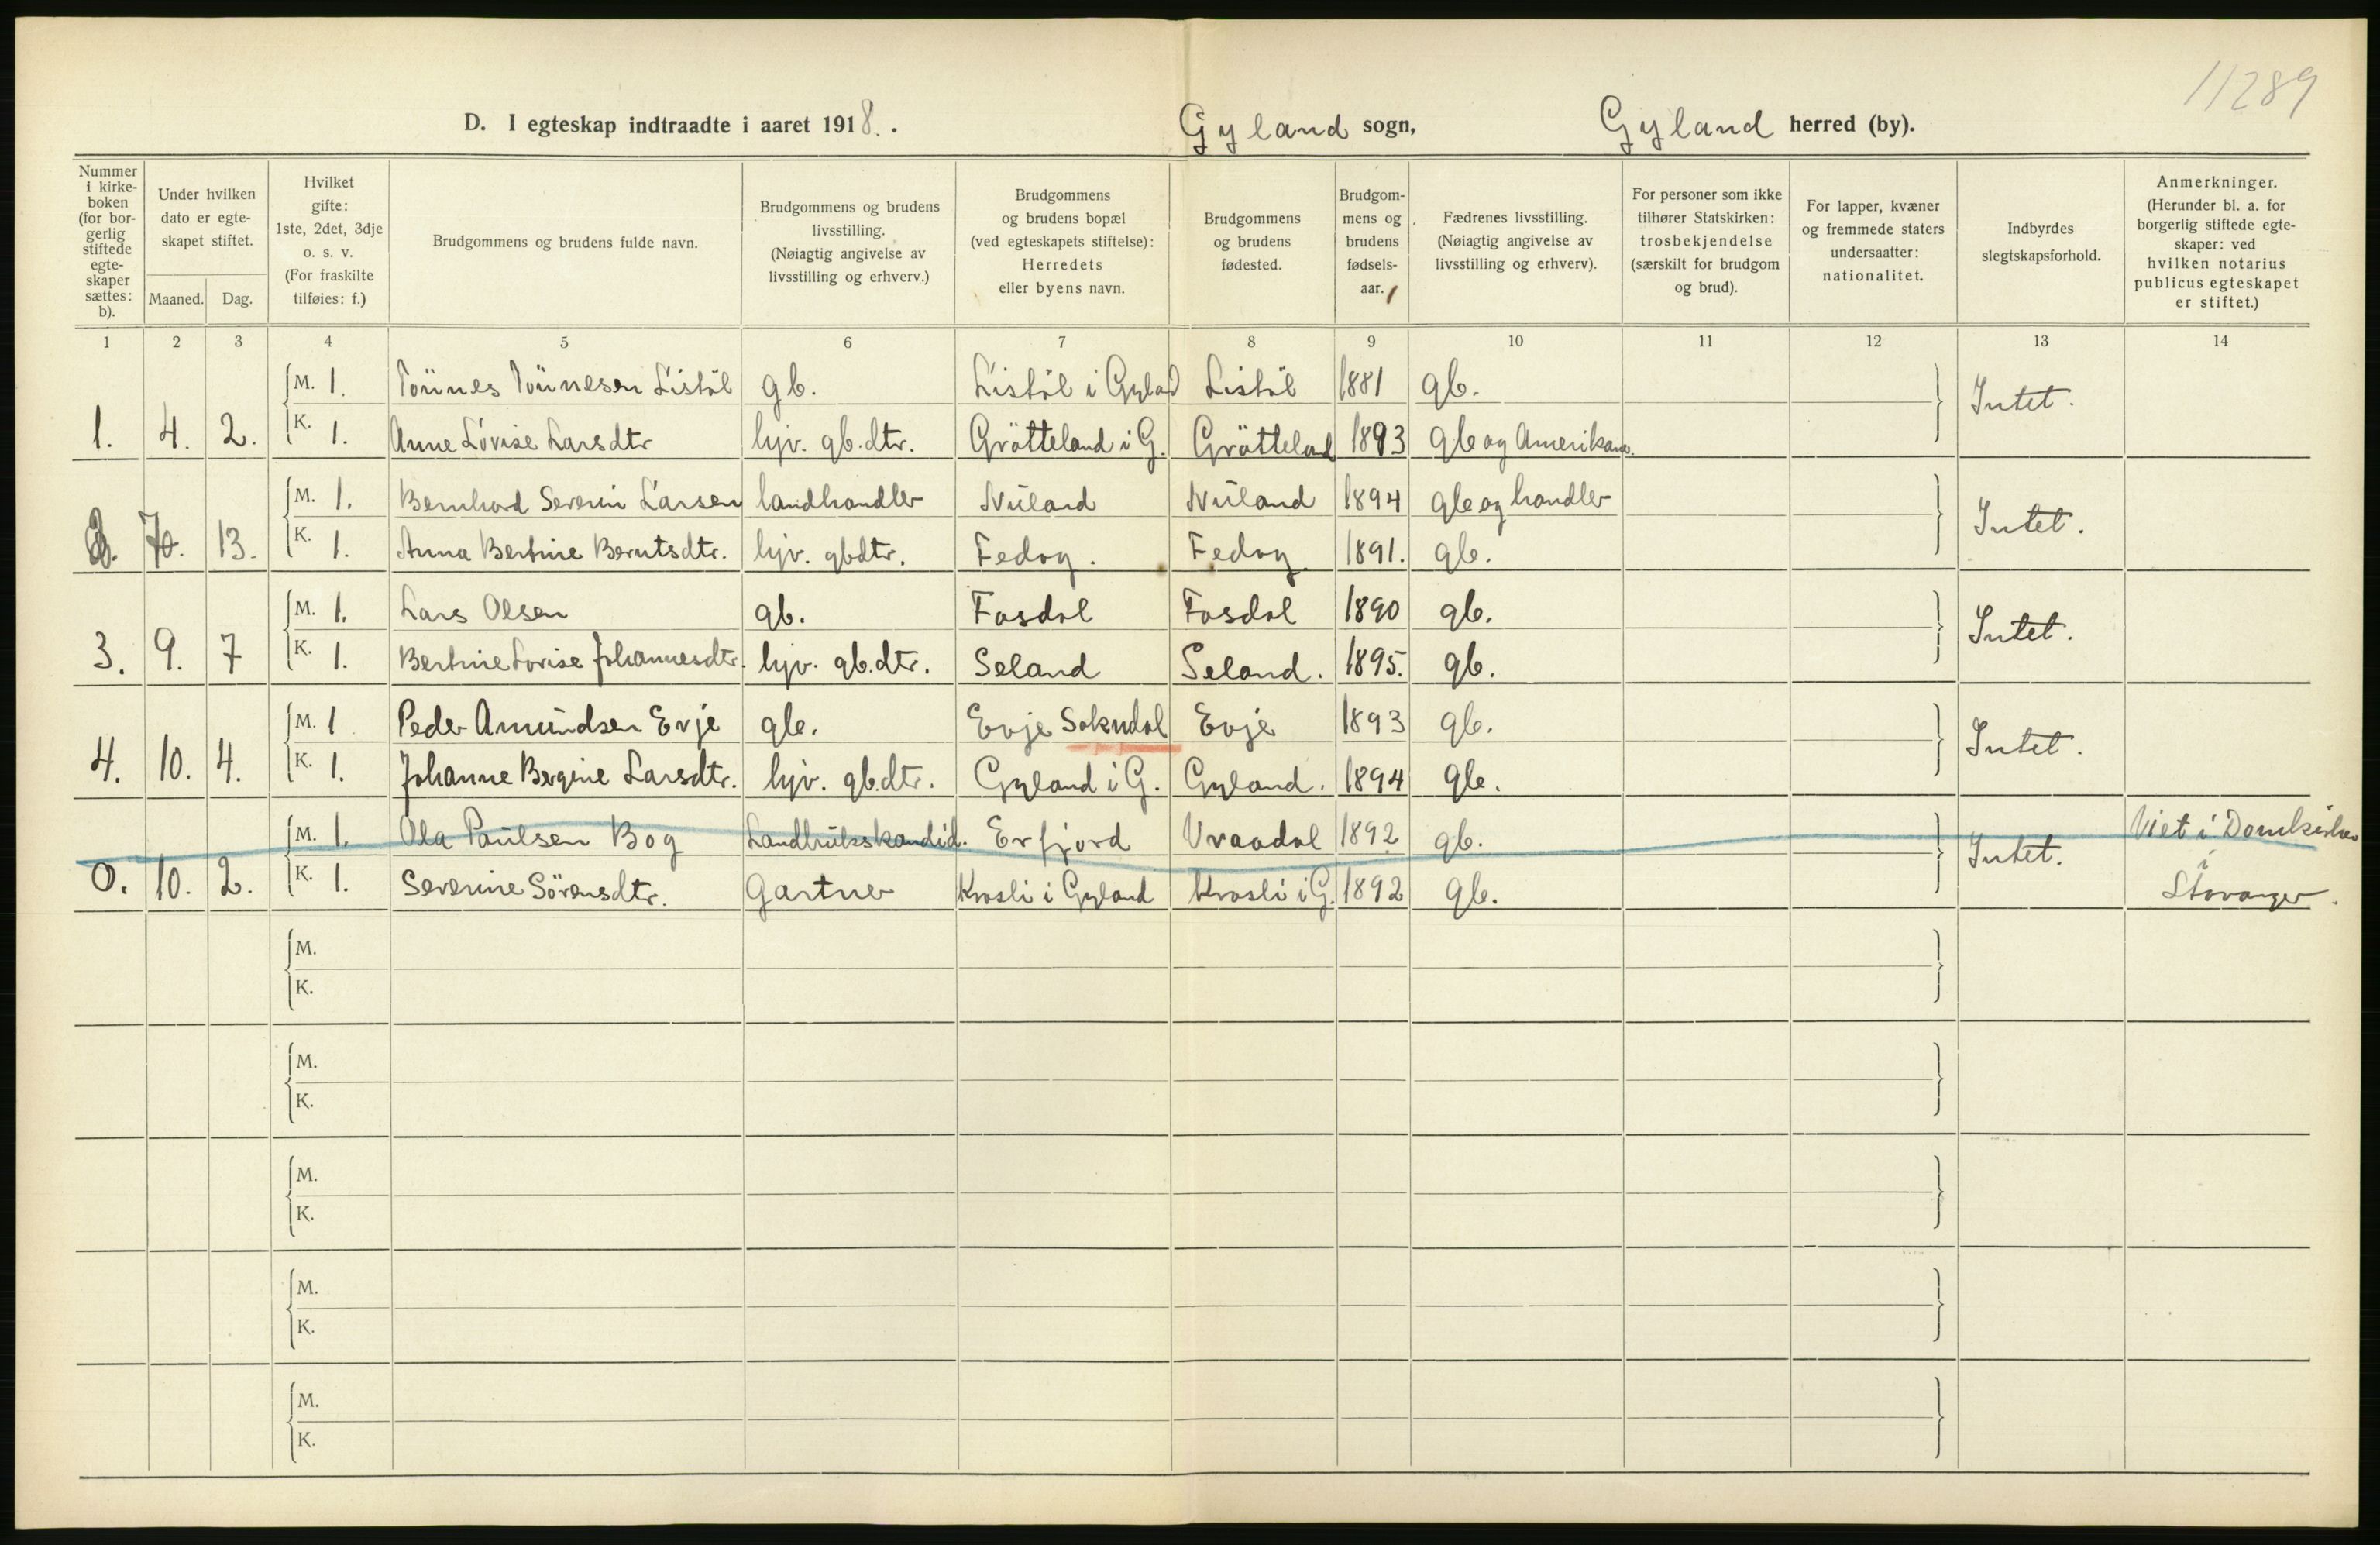 11289
D. I egteskap indtraadte i aaret 1918. Gyland sogn, Gyland herred (by).
Nummer i kirke-boken (for bor-gerlig stiftede egte-skaper sættes: b).
Under hvilken dato er egte-skapet stiftet.
Maaned. Dag.
Hvilket gifte: 1ste, 2det, 3dje o. s. v. (For fraskilte tilføies: f.)
Brudgommens og brudens fulde navn.
Brudgommens og brudens livsstilling. (Nøiagtig angivelse av livsstilling og erhverv.)
Brudgommens og brudens bopæl (ved egteskapets stiftelse): Herredets eller byens navn.
Brudgommens og brudens fødested.
Brudgom-mens og brudens fødsels-aar.
Fædrenes livsstilling. (Nøiagtig angivelse av livsstilling og erhverv).
For personer som ikke tilhører Statskirken: trosbekjendelse (særskilt for brudgom og brud).
For lapper, kvæner og fremmede staters undersaatter: nationalitet.
Indbyrdes slegtskapsforhold.
Anmerkninger. (Herunder bl. a. for borgerlig stiftede egte-skaper: ved hvilken notarius publicus egteskapet er stiftet.)
1 2 3 4 5 6 7 8 9 10 11 12 13 14
M. 1. Tönnes Tönnesen Listöl gb. Listöl i Gylad Listöl 1881 gb. Intet.
1. 4. 2. K. 1. Anne Lovise Larsdtr hjv. gb.dtr. Grötteland i G. Gröttelad 1893 gb og Amerikan.
M. 1. Bernhard Severin Larsen landhandler Nuland Nuland 1894 gb og handler Intet.
2. 13. K. 1. Anna Bertine Berntsdtr. hjv. gbdtr. Fedog. Fedog. 1891. gb.
M. 1. Lars Olsen gb. Fosdal Fosdal 1890 gb. Intet.
3. 9. 7 K. 1. Bertine Lovise Johannesdtr. hjv. gb.dtr. Seland Seland. 1895. gb.
M. 1 Peder Amundsen Evje gb. Evje Sokndal Evje 1893 gb. Intet.
4. 10. 4. K. 1. Johanne Bergine Larsdtr. hjv. gb.dtr. Gyland i G. Gyland. 1894 gb.
M. 1. Ola Paulsen Bog Landbrukskandid. Erfjord Vraadal 1892 gb. Intet. Viet i Domkirken
i
0. 10. 2. K. 1. Severine Sörensdtr. Gartner Krosli i Gyland Krosli i G. 1892 gb. Stavanger.
M.
K.
M.
K.
M.
K.
M.
K.
M.
K.